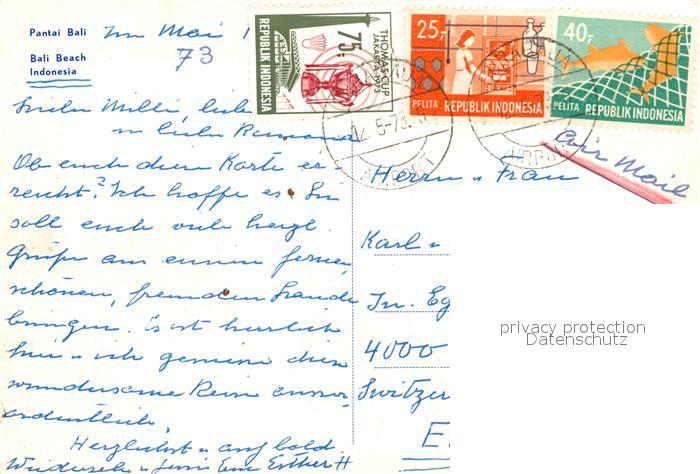 Pantai Bali
Bali Beach
Indonesia
Im Mai 1
73
75,-
THOMAS-CUP
JAKARTA 1973
REPUBLIK INDONESIA
25,-
PELITA REPUBLIK INDONESIA
40,-
PELITA REPUBLIK INDONESIA
5-73
Air Mail
liebe
u liebe
Ob euch diese Karte er-
reicht? Ich hoffe es. Sie
soll euch viele herzl.
Grüße aus einem fernen,
schönen, fremden Lande
bringen. Es ist herrlich
hier u ich geniesse diese
wundersame Reise ausser-
ordentlich.
Herzlichst u auf bald
Wiedersehn Eure Esther H
Herrn u Frau
Karl u
In. Eg
4000
Switzer
E
privacy protection
Datenschutz